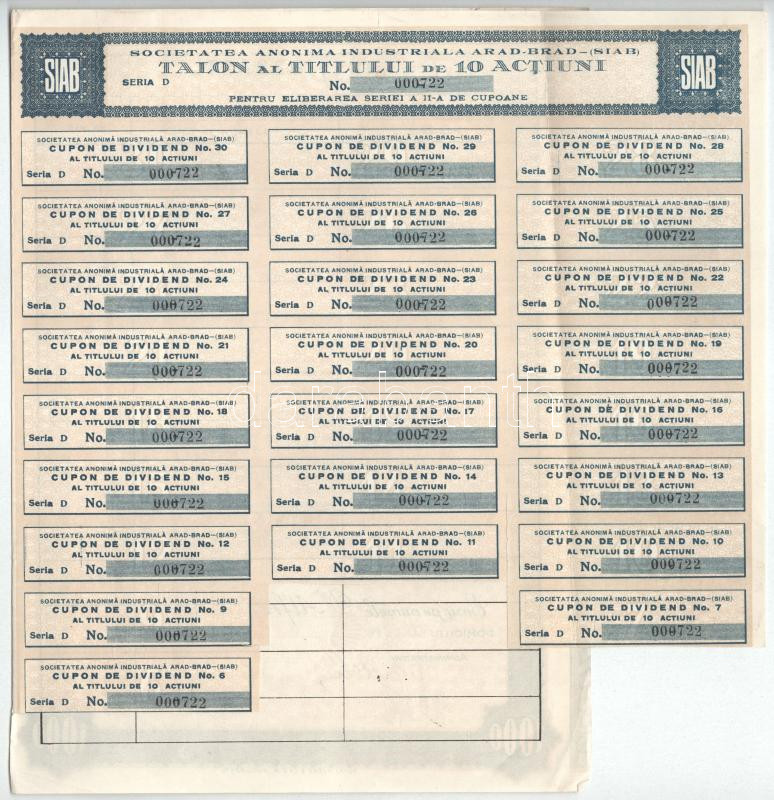 SOCIETATEA ANONIMA INDUSTRIALA ARAD-BRAD-(SIAB)
SIAB TALON AL TITLULUI DE 10 ACŢIUNI SIAB
SERIA D No. 000722
PENTRU ELIBERAREA SERIEI A II-A DE CUPOANE
SOCIETATEA ANONIMĂ INDUSTRIALĂ ARAD-BRAD-(SIAB)
CUPON DE DIVIDEND No. 30
AL TITLULUI DE 10 ACTIUNI
Seria D No. 000722
SOCIETATEA ANONIMĂ INDUSTRIALĂ ARAD-BRAD-(SIAB)
CUPON DE DIVIDEND No. 29
AL TITLULUI DE 10 ACTIUNI
Seria D No. 000722
SOCIETATEA ANONIMĂ INDUSTRIALĂ ARAD-BRAD-(SIAB)
CUPON DE DIVIDEND No. 28
AL TITLULUI DE 10 ACTIUNI
Seria D No. 000722
SOCIETATEA ANONIMĂ INDUSTRIALĂ ARAD-BRAD-(SIAB)
CUPON DE DIVIDEND No. 27
AL TITLULUI DE 10 ACTIUNI
Seria D No. 000722
SOCIETATEA ANONIMĂ INDUSTRIALĂ ARAD-BRAD-(SIAB)
CUPON DE DIVIDEND No. 26
AL TITLULUI DE 10 ACTIUNI
Seria D No. 000722
SOCIETATEA ANONIMĂ INDUSTRIALĂ ARAD-BRAD-(SIAB)
CUPON DE DIVIDEND No. 25
AL TITLULUI DE 10 ACTIUNI
Seria D No. 000722
SOCIETATEA ANONIMĂ INDUSTRIALĂ ARAD-BRAD-(SIAB)
CUPON DE DIVIDEND No. 24
AL TITLULUI DE 10 ACTIUNI
Seria D No. 000722
SOCIETATEA ANONIMĂ INDUSTRIALĂ ARAD-BRAD-(SIAB)
CUPON DE DIVIDEND No. 23
AL TITLULUI DE 10 ACTIUNI
Seria D No. 000722
SOCIETATEA ANONIMĂ INDUSTRIALĂ ARAD-BRAD-(SIAB)
CUPON DE DIVIDEND No. 22
AL TITLULUI DE 10 ACTIUNI
Seria D No. 000722
SOCIETATEA ANONIMĂ INDUSTRIALĂ ARAD-BRAD-(SIAB)
CUPON DE DIVIDEND No. 21
AL TITLULUI DE 10 ACTIUNI
Seria D No. 000722
SOCIETATEA ANONIMĂ INDUSTRIALĂ ARAD-BRAD-(SIAB)
CUPON DE DIVIDEND No. 20
AL TITLULUI DE 10 ACTIUNI
Seria D No. 000722
SOCIETATEA ANONIMĂ INDUSTRIALĂ ARAD-BRAD-(SIAB)
CUPON DE DIVIDEND No. 19
AL TITLULUI DE 10 ACTIUNI
Seria D No. 000722
SOCIETATEA ANONIMĂ INDUSTRIALĂ ARAD-BRAD-(SIAB)
CUPON DE DIVIDEND No. 18
AL TITLULUI DE 10 ACTIUNI
Seria D No. 000722
SOCIETATEA ANONIMĂ INDUSTRIALĂ ARAD-BRAD-(SIAB)
CUPON DE DIVIDEND No. 17
AL TITLULUI DE 10 ACTIUNI
Seria D No. 000722
SOCIETATEA ANONIMĂ INDUSTRIALĂ ARAD-BRAD-(SIAB)
CUPON DE DIVIDEND No. 16
AL TITLULUI DE 10 ACTIUNI
Seria D No. 000722
SOCIETATEA ANONIMĂ INDUSTRIALĂ ARAD-BRAD-(SIAB)
CUPON DE DIVIDEND No. 15
AL TITLULUI DE 10 ACTIUNI
Seria D No. 000722
SOCIETATEA ANONIMĂ INDUSTRIALĂ ARAD-BRAD-(SIAB)
CUPON DE DIVIDEND No. 14
AL TITLULUI DE 10 ACTIUNI
Seria D No. 000722
SOCIETATEA ANONIMĂ INDUSTRIALĂ ARAD-BRAD-(SIAB)
CUPON DE DIVIDEND No. 13
AL TITLULUI DE 10 ACTIUNI
Seria D No. 000722
SOCIETATEA ANONIMĂ INDUSTRIALĂ ARAD-BRAD-(SIAB)
CUPON DE DIVIDEND No. 12
AL TITLULUI DE 10 ACTIUNI
Seria D No. 000722
SOCIETATEA ANONIMĂ INDUSTRIALĂ ARAD-BRAD-(SIAB)
CUPON DE DIVIDEND No. 11
AL TITLULUI DE 10 ACTIUNI
Seria D No. 000722
SOCIETATEA ANONIMĂ INDUSTRIALĂ ARAD-BRAD-(SIAB)
CUPON DE DIVIDEND No. 10
AL TITLULUI DE 10 ACTIUNI
Seria D No. 000722
SOCIETATEA ANONIMĂ INDUSTRIALĂ ARAD-BRAD-(SIAB)
CUPON DE DIVIDEND No. 9
AL TITLULUI DE 10 ACTIUNI
Seria D No. 000722
SOCIETATEA ANONIMĂ INDUSTRIALĂ ARAD-BRAD-(SIAB)
CUPON DE DIVIDEND No. 7
AL TITLULUI DE 10 ACTIUNI
Seria D No. 000722
SOCIETATEA ANONIMĂ INDUSTRIALĂ ARAD-BRAD-(SIAB)
CUPON DE DIVIDEND No. 6
AL TITLULUI DE 10 ACTIUNI
Seria D No. 000722
darabanth